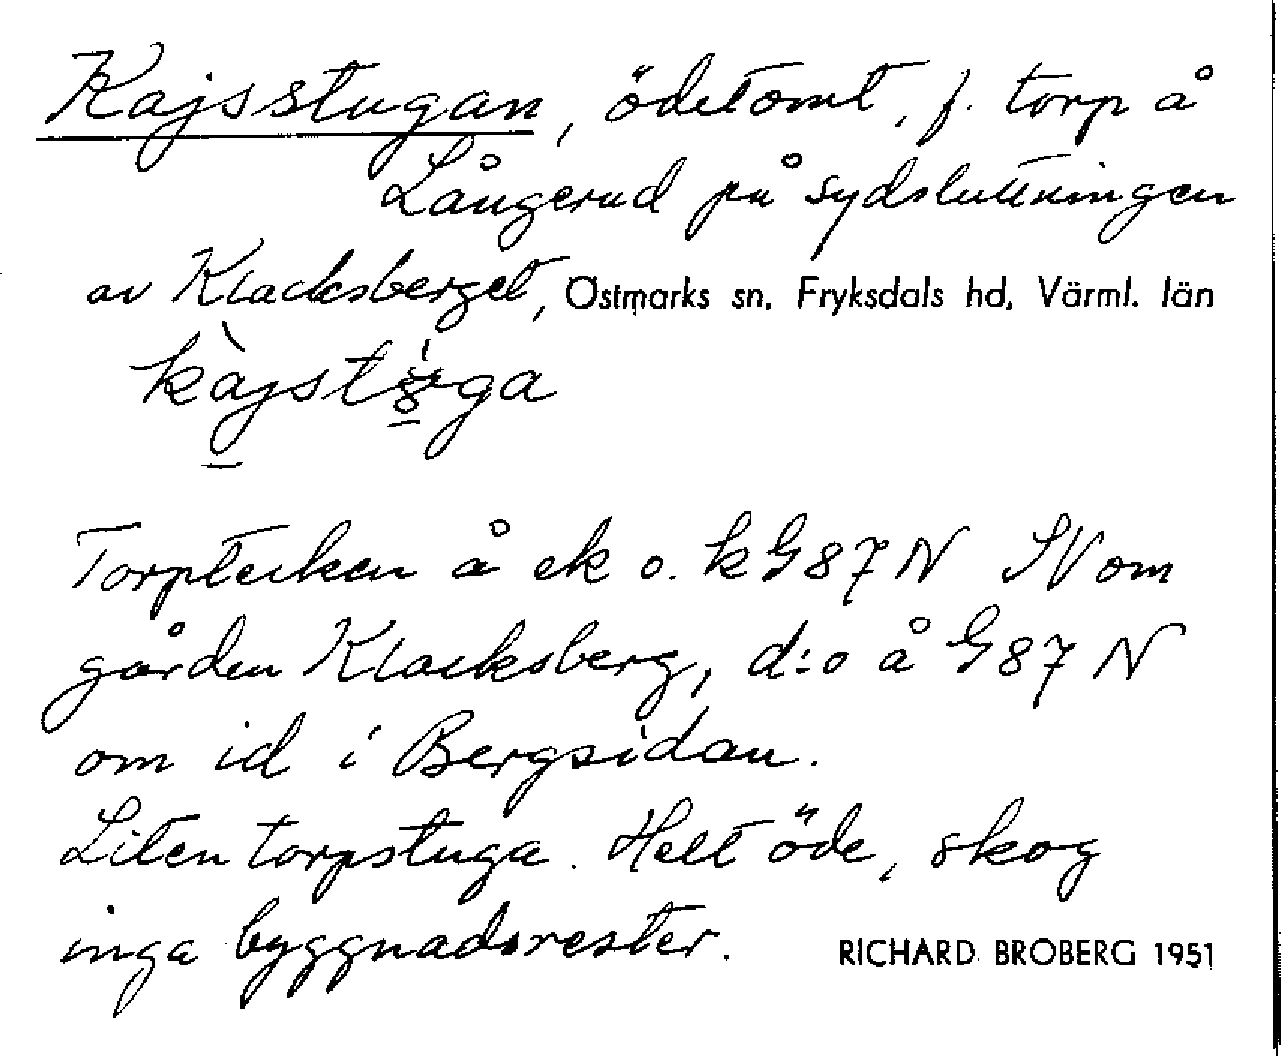 Kajsstugan, ödetomt, f. torp å
Långerud på sydsluttningen
av Klacksberget, Östmarks sn. Fryksdals hd, Värml. län
Torptecken å ek o. k G 87 N SV om
gården Klacksberg, d:o å G 87 N
om id i Bergsidan.
Liten torpstuga. Helt öde, skog
inga byggnadsrester. RICHARD BROBERG 1951